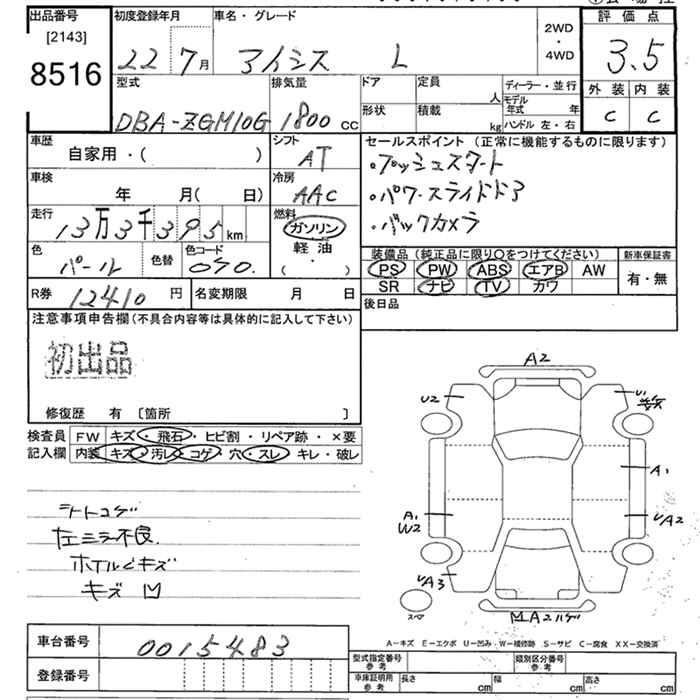 出品番号
[2143]
8516
初度登録年月
22 7月
車名・グレード
アイシス L
2WD
・
4WD
評価点
3.5
外装 内装
C C
型式
DBA-ZGM10G
排気量
1800 cc
ドア
形状
定員 人
積載 kg
ディーラー・並行
モデル年式 年
ハンドル 左・右
車歴
自家用・( )
シフト
AT
車検
年 月( 日)
冷房
AAC
走行
13万3千395km
燃料
ガソリン
軽油
( ・ )
色
パール
色替
色コード
070.
セールスポイント (正常に機能するものに限ります)
・プッシュスタート
・パワースライドドア
・バックカメラ
装備品 (純正品に限り○をつけてください)
PS PW ABS エアB AW
SR ナビ TV カワ
新車保証書
有・無
R券 12410円
名変期限 月 日
後日品
注意事項申告欄 (不具合内容等は具体的に記入して下さい)
初出品
修復歴 有 [箇所 ]
検査員記入欄
FW キズ・飛石・ヒビ割・リペア跡・×要
内装 キズ・汚レ・コゲ・穴・スレ・キレ・破レ
シートコゲ
左ミラー不良
キズ
A2
U2
U1
A1
A1
W2
UA2
UA3
スペア
A2ハゲ
A-キズ E-エクボ U-凹み W-補修跡 S-サビ C-腐食 XX-交換済
車台番号
0015483
登録番号
型式指定番号
参考
類別区分番号
参考
車庫証明用
参考
長さ cm
幅 cm
高さ cm